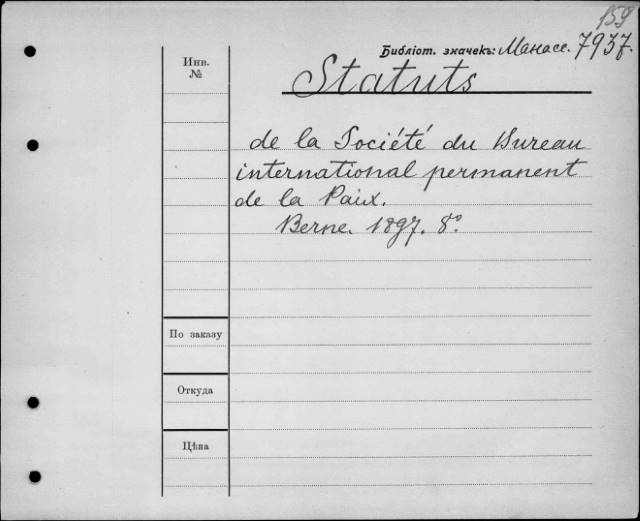 159
Библіот. значекъ: Манасс. 7937.
Инв.
№
Statuts
de la Société du Bureau
international permanent
de la Paix.
Berne. 1897. 8°.
По заказу
Откуда
Цѣна